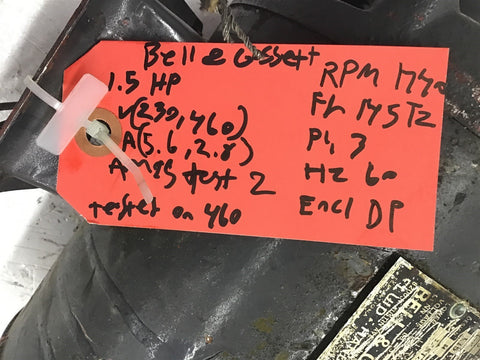 Bell & Gossett
1.5 HP
V(230,460)
A(5.6,2.8)
Amps test 2
tested on 460
RPM 1740
Fr 145TZ
Ph 3
Hz 60
Encl DP
BELL &